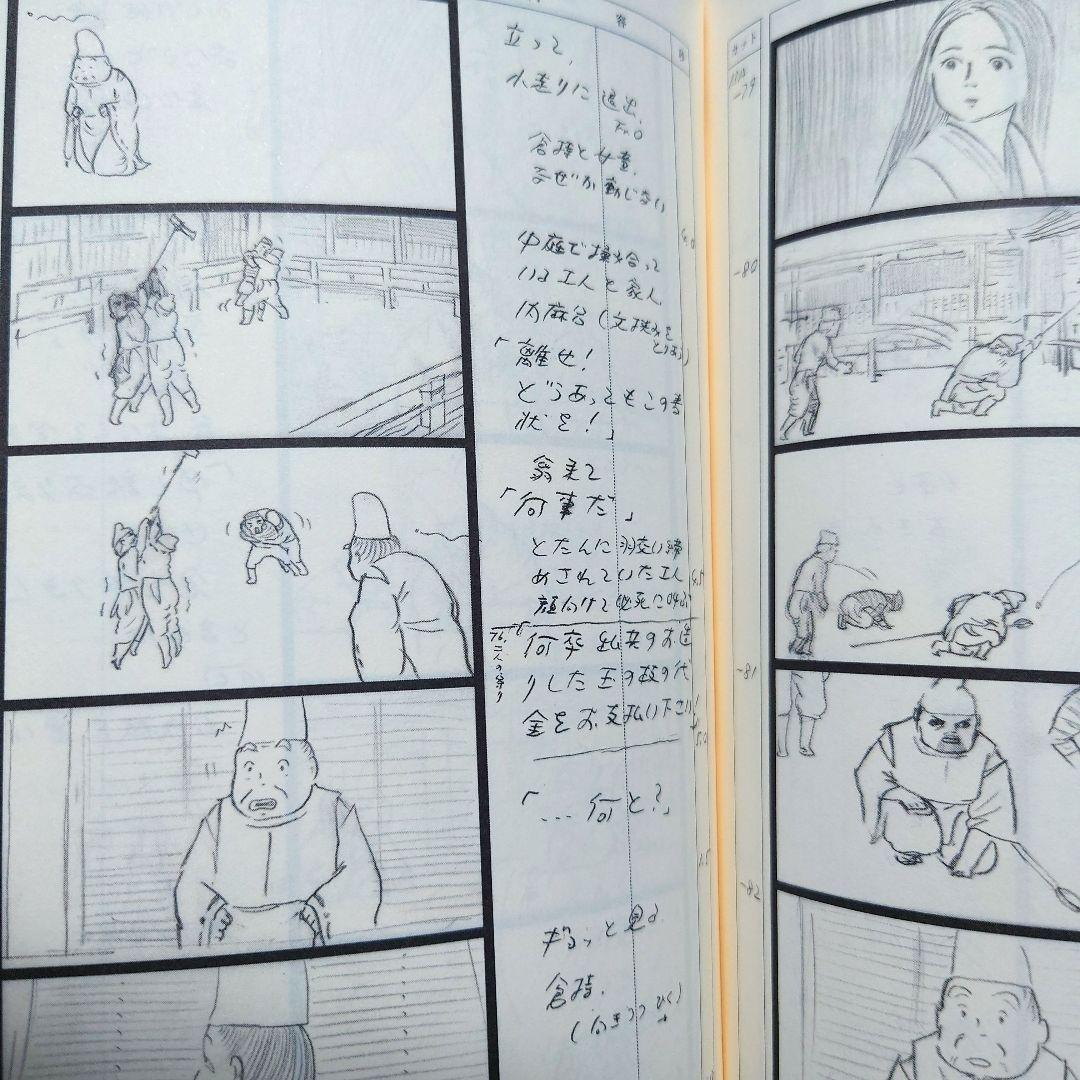 容
秒
立って、
小走りに退出。
倉持と女童、
なぜか動じない
中庭で揉み合って
いる工人と家人
内麻呂(文挟みを
「離せ!
どうあってもこの書
状を!」
翁来て
「何事だ」
とたんに羽交い締
めされていた工人
顔向けて必死に叫ぶ
何卒 お造
りした玉の枝の代
金をお支払い下さい!
「…何と?」
ギョッと見る
倉持。
カット
-79
-80
-81
-82